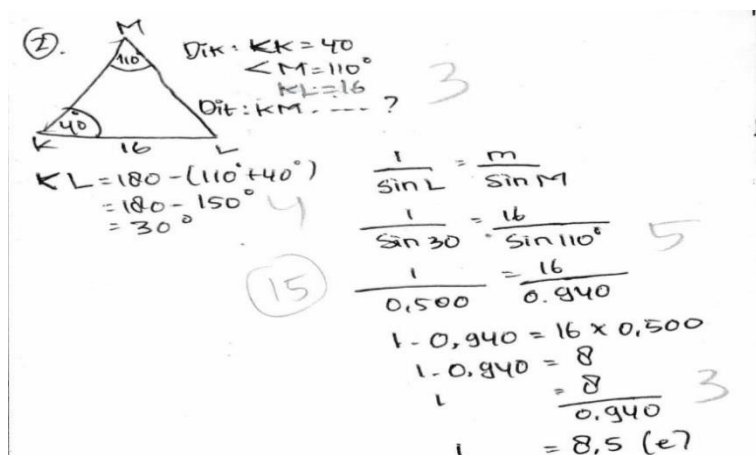 2.
M
110°
40°
K 16 L
Dik : KK = 40
< M = 110°
KL = 16
Dit : KM . ---- ?
3
KL = 180 - (110° + 40°)
= 180 - 150°
= 30°
4
15
l/sin L = m/sin M
l/sin 30 = 16/sin 110°
5
l/0,500 = 16/0.940
l - 0,940 = 16 × 0,500
l - 0,940 = 8
l = 8/0.940
3
l = 8,5 (e)